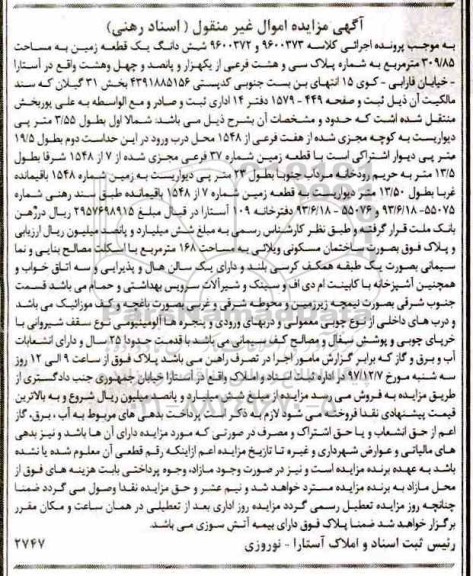 آگهی مزایده اموال غیر منقول ( اسناد رهنی )
به موجب پرونده اجرائی کلاسه ۹۶۰۰۳۷۳ و ۹۶۰۰۳۷۲ شش دانگ یک قطعه زمین به مساحت
۳۰۹/۸۵ مترمربع به شماره پلاک سی و هشت فرعی از یکهزار و پانصد و چهل وهشت واقع در آستارا
- خیابان فارابی - کوی ۱۵ انتهای بن بست جنوبی کدپستی ۴۳۹۱۸۸۵۱۵۶ بخش ۳۱ گیلان که سند
مالکیت آن ذیل ثبت و صفحه ۴۴۹ - ۱۵۷۹ دفتر ۱۴ اداری ثبت و صادر و مع الواسطه به علی پوربخش
منتقل شده است که حدود و مشخصات آن بشرح ذیل می باشد: شمالا اول بطول ۳/۵۵ متر پی
دیواریست به کوچه مجزی شده از هفت فرعی از ۱۵۴۸ محل درب ورود در این حداست دوم بطول ۱۹/۵
متر پی دیوار اشتراکی است با قطعه زمین شماره ۳۷ فرعی مجزی شده از ۷ از ۱۵۴۸ شرقا بطول
۱۳/۵ متر به حریم رودخانه مرداب جنوبا بطول ۲۳ متر پی دیواریست به زمین شماره ۱۵۴۸ باقیمانده
غربا بطول ۱۳/۵۰ متر دیواریست به قطعه زمین شماره ۷ از ۱۵۴۸ باقیمانده طبق سند رهنی شماره
۵۵۰۷۵- ۹۳/۶/۱۸ و ۵۵۰۷۶ - ۹۳/۶/۱۸ دفترخانه ۱۰۹ آستارا در قبال مبلغ ۲۹۵۷۶۹۸۹۱۵ ریال دررهن
بانک ملت قرار گرفته و طبق نظر کارشناس رسمی به مبلغ شش میلیارد و پانصد میلیون ریال ارزیابی
و پلاک فوق بصورت ساختمان مسکونی ویلائی به مساحت ۱۶۸ مترمربع با اسکلت مصالح بنایی و نما
سیمانی بصورت یک طبقه همکف کرسی بلند و دارای یک سالن هال و پذیرایی و سه اتاق خواب و
همچنین آشپزخانه با کابینت ام دی اف و سینک و شیرآلات سرویس بهداشتی و حمام می باشد قسمت
جنوب شرقی بصورت نیمچه زیرزمین و محوطه شرقی و غربی بصورت باغچه و کف موزائیک می باشد
و درب های داخلی از نوع چوبی معمولی و دربهای ورودی و پنجره ها آلومینیومی نوع سقف شیروانی با
خرپای چوبی و پوشش سفال و مصالح کف سیمانی می باشد با قدمت حدودا ۲۵ سال و دارای انشعابات
آب و برق و گاز که برابر گزارش مامور اجرا در تصرف راهن می باشد پلاک فوق از ساعت ۹ الی ۱۲ روز
سه شنبه مورخ ۹۷/۱۲/۷ در اداره ثبت اسناد و املاک واقع در آستارا خیابان جمهوری جنب دادگستری از
طریق مزایده به فروش می رسد مزایده از مبلغ شش میلیارد و پانصد میلیون ریال شروع و به بالاترین
قیمت پیشنهادی نقدا فروخته می شود لازم به ذکر است پرداخت بدهی های مربوط به آب ، برق، گاز
اعم از حق انشعاب و یا حق اشتراک و مصرف در صورتی که مورد مزایده دارای آن ها باشد و نیز بدهی
های مالیاتی و عوارض شهرداری و غیره تا تاریخ مزایده اعم ازاینکه رقم قطعی آن معلوم شده یا نشده
باشد به عهده برنده مزایده است و نیز در صورت وجود مازاد، وجوه پرداختی بابت هزینه های فوق از
محل مازاد به برنده مزایده مسترد خواهد شد و نیم عشر و حق مزایده نقدا وصول می گردد ضمنا
چنانچه روز مزایده تعطیل رسمی گردد مزایده روز اداری بعد از تعطیلی در همان ساعت و مکان مقرر
برگزار خواهد شد ضمنا پلاک فوق دارای بیمه آتش سوزی می باشد.
رئیس ثبت اسناد و املاک آستارا - نوروزی ۲۷۴۷